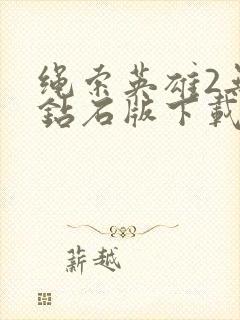 绳索英雄2无
钻石版下载
薪越